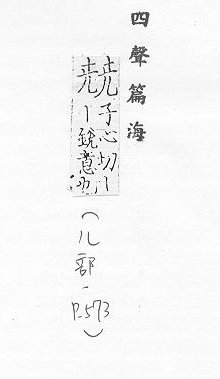 四聲篇海
子心切丨
丨銳意也
(儿部、P.573)